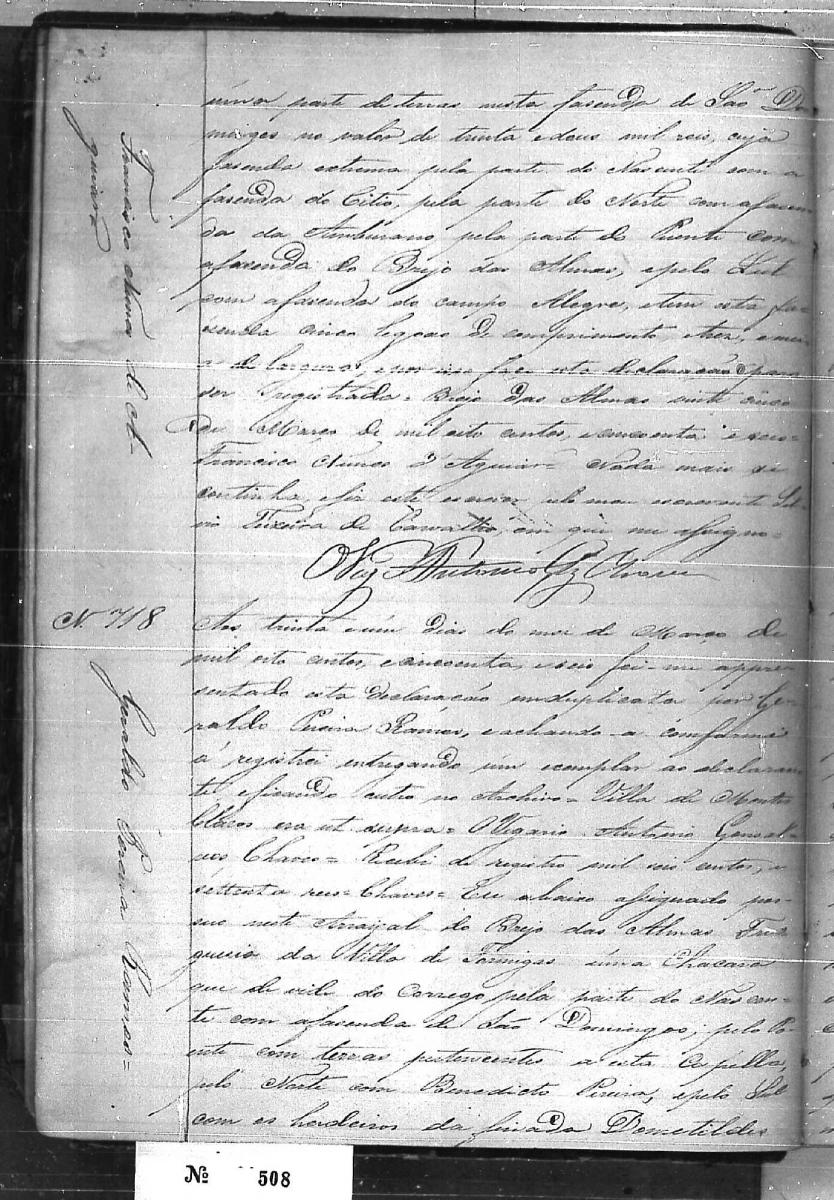 uma parte de terras nesta fasenda de São Do-
mingos no valor de trinta e dous mil reis, cuja
fasenda extrema pela parte do Nascente com a
fasenda do Citio, pela parte do Norte com afasen-
da da Imburana pela parte do Puente com
afasenda do Brejo das Almas, epelo Sul
com afasenda do campo Alegre, etem esta fa-
senda cinco legoas de comprimento, etres, e mei-
a de largura, e por isso faço esta declaração para
ser registrada = Brejo das Almas vinte cinco
de Março de mil oito centos, e cincoenta e seis =
Francisco Nunes d'Aguiar = Nada mais se
continha, efiz este escrever pelo meu escrevente
Teixeira de Carvalho, em que me assigno =
O Vigº Antonio Glz Chaves
Francisco Nunes de A-
guiar
N. 718
Aos trinta e um dias do mez de Março de
mil oito centos, e cincoenta, e seis foi-me appre-
sentado esta declaração em duplicata por Ge-
raldo Pereira Ramos, e achando-a comforme
a registrei entregando um exemplar ao declaran-
te eficando outro no Archivo = Villa de Montes
Claros era ut supra = O Vigario Antonio Gonsal-
ves Chaves = Recebi de registro mil seis centos, e
settenta reis = Chaves = Eu abaixo assignado pos-
suo neste Arrayal do Brejo das Almas Fre-
guesia da Villa de Formigas uma Chacara
que devide do Corrego pela parte do Nascen-
te com afasenda de São Domingos; pelo Po-
ente com terras pertencentes a esta Capella,
pelo Norte com Benedicto Pereira, epelo Sul
com os herdeiros da finada Demetildes
Geraldo Pereira Ramos =
Nº 508